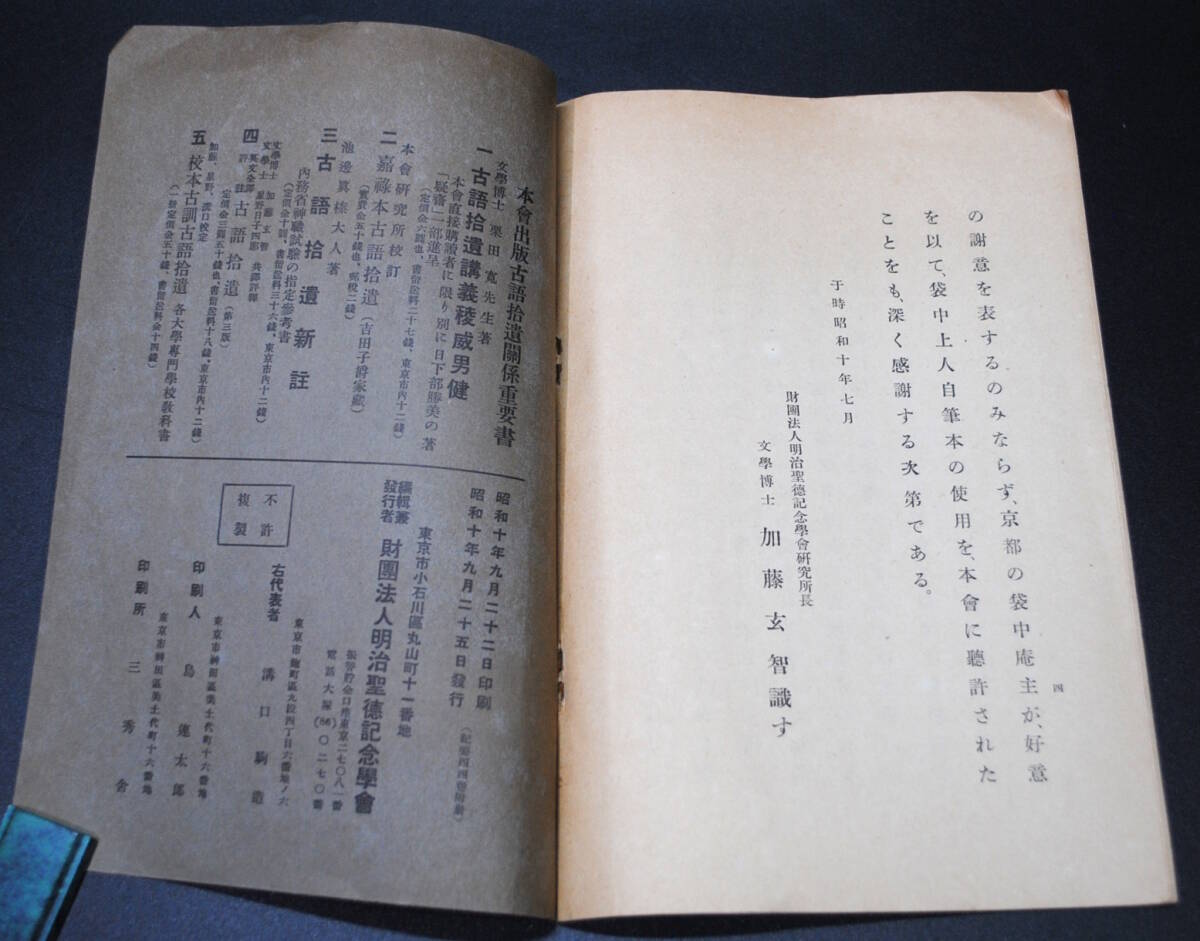 の謝意を表するのみならず、京都の袋中庵主が、好意
を以て、袋中上人自筆本の使用を、本會に聽許された
ことをも、深く感謝する次第である。
于時昭和十年七月
財團法人明治聖德記念學會硏究所長
文學博士 加藤玄智識す
四
本會出版古語拾遺關係重要書
文學博士 栗田寬先生著
一 古語拾遺講義稜威男健
本會直接購讀者に限り別に日下部勝美の著
「疑齋」一部進呈
(定價金六圓也、書留送料二十七錢、東京市內十二錢)
本會硏究所校訂
二 嘉祿本古語拾遺(吉田子爵家藏)
(實費金五十錢也、郵稅二錢)
池邊眞榛大人著
三 古語拾遺新註
內務省神職試驗の指定參考書
(定價金十圓、書留送料三十六錢、東京市內十二錢)
文學博士 加藤玄智
文學士 星野日子四郞 共譯評釋
四 英文全譯評註 古語拾遺(第三版)
(定價金三圓五十錢也、書留送料十八錢、東京市內十二錢)
加藤、星野、溝口校定
五 校本古訓古語拾遺 各大學專門學校敎科書
(一册定價金五十錢、書留送料金十四錢)
昭和十年九月二十二日印刷
昭和十年九月二十五日發行
(紀要四四卷附錄)
東京市小石川區丸山町十一番地
編輯兼
發行者 財團法人明治聖德記念學會
振替貯金口座東京二七〇八一番
電話大塚(86)〇二七〇番
東京市麴町區九段四丁目六番地ノ六
右代表者 溝口駒造
東京市神田區美土代町十六番地
印刷人 島連太郞
東京市神田區美土代町十六番地
印刷所 三秀舍
不許
複製